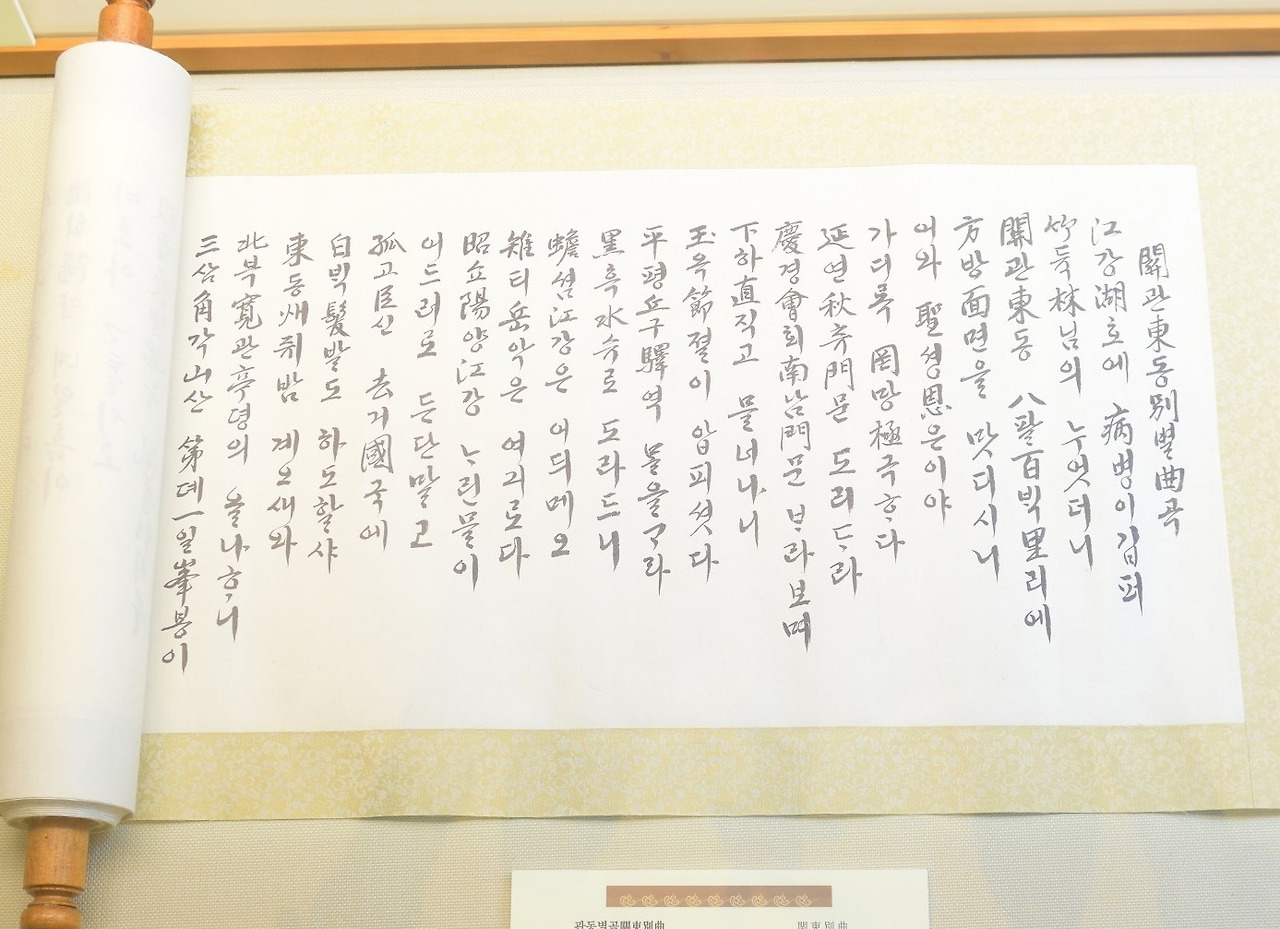 關관東동別별曲곡
江강湖호에 病병이 깁퍼
竹듁林님의 누엇더니
關관東동 八팔百빅里리에
方방面면을 맛디시니
어와 聖셩恩은이야
가디록 罔망極극ᄒᆞ다
延연秋츄門문 도리ᄃᆞ라
慶경會회南남門문 ᄇᆞ라보며
下하直직고 믈너나니
玉옥節졀이 압픠셧다
平평丘구驛역 ᄆᆞᆯ을ᄀᆞ라
黑흑水슈로 도라드니
蟾셤江강은 어듸메오
雉티岳악은 여긔로다
昭쇼陽양江강 ᄂᆞ린믈이
어드러로 든단말고
孤고臣신 去거國국에
白빅髮발도 하도할샤
東동州쥐밤 계오새와
北북寬관亭뎡의 올나ᄒᆞ니
三삼角각山산 第뎨一일峯봉이
관동별곡關東別曲
關東別曲